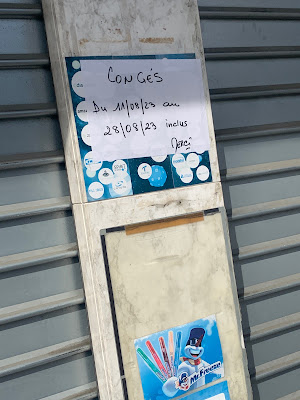 CONGÉS
Du 11/08/23 au
28/08/23 inclus
Merci
Mr. Freeze